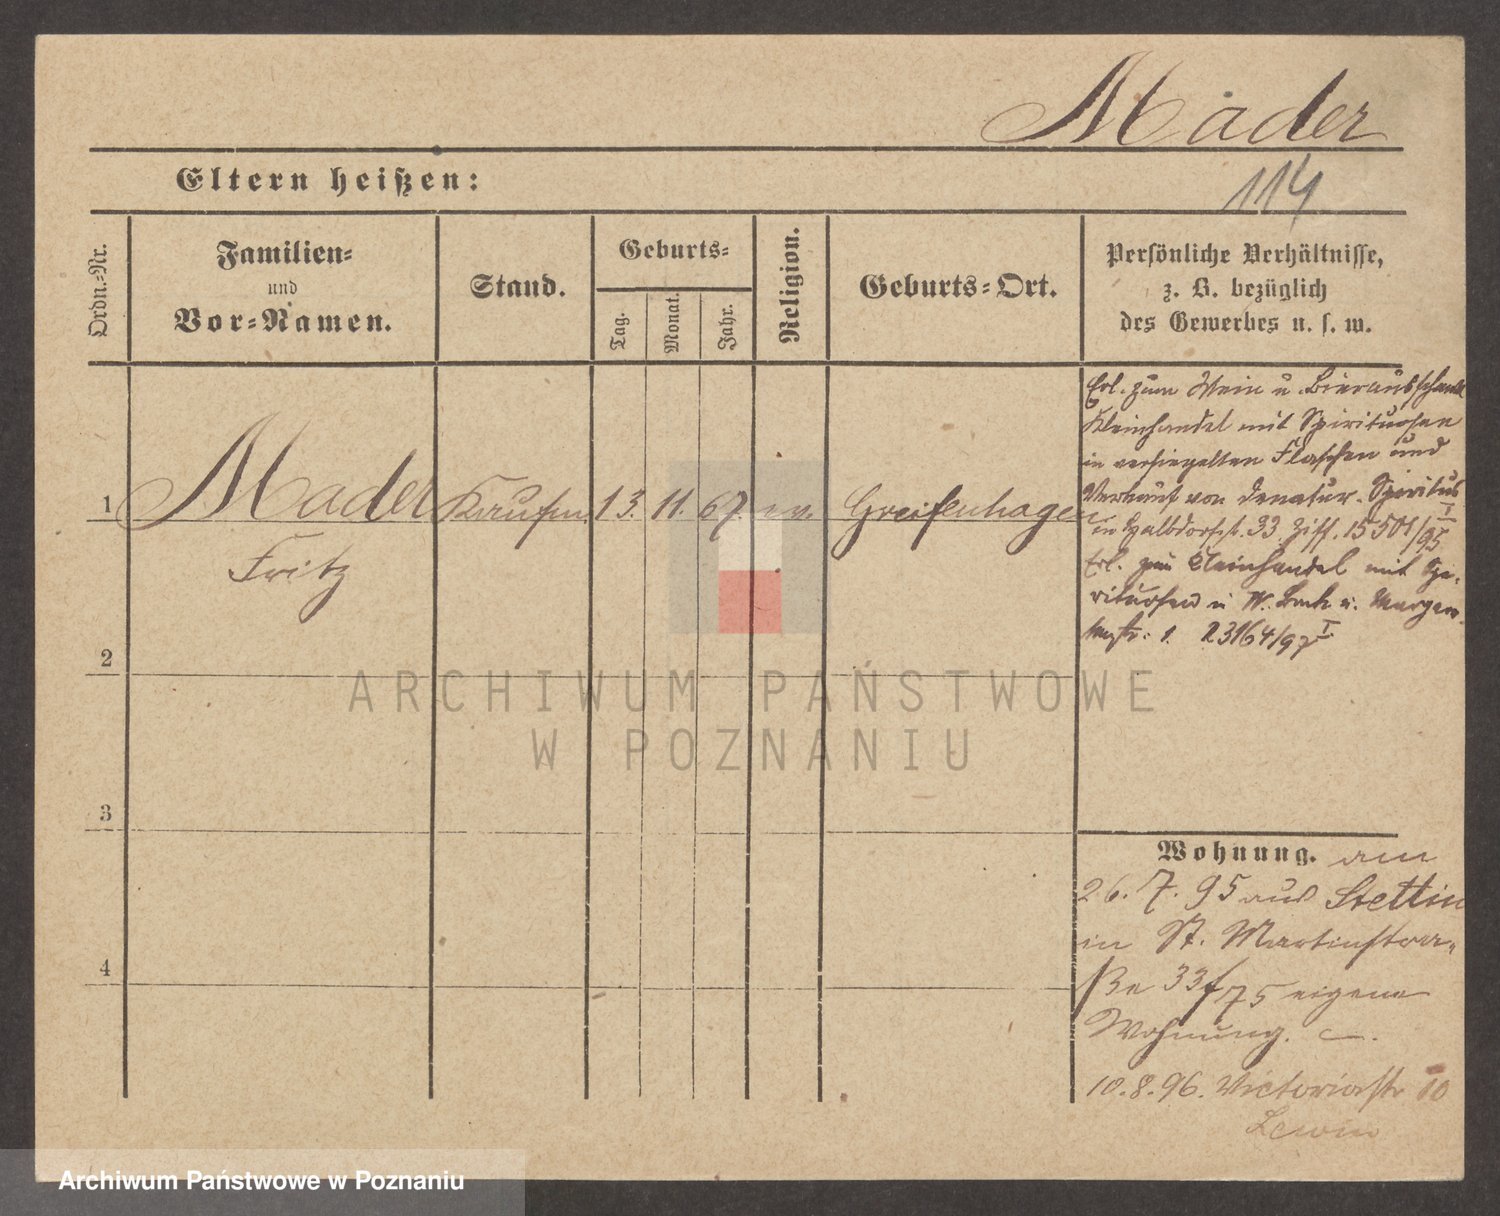 Mader
Eltern heißen:
114
Ordn.-Nr.
Familien-
und
Vor-Namen.
Stand.
Geburts-
Tag.
Monat.
Jahr.
Religion.
Geburts-Ort.
Persönliche Verhältnisse,
z. B. bezüglich
des Gewerbes u. s. w.
1
Mader Kaufm. 13. 11. 67. ev. Greifenhagen
Fritz
2
3
4
Erl. zum Wein u. Bierausschank
Kleinhandel mit Spirituosen
in versiegelten Flaschen und
Verkauf von denatur. Spiritus
in Halbdorfst. 33 Ziff. 15501/95 I
Erl. zum Kleinhandel mit Spi-
rituosen
1. 23164/97 I
Wohnung. am
26. 7. 95 aus Stettin
in St. Martinstra-
ße 33/75 eigene
Wohnung.
10. 8. 96. Victoriastr 10
Lewin
ARCHIWUM PAŃSTWOWE
W POZNANIU
Archiwum Państwowe w Poznaniu